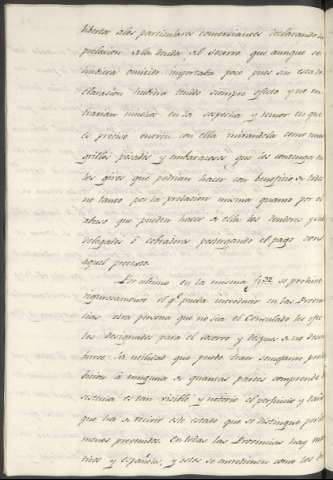 libertar a los particulares comerciantes declarando la
prelacion de la deuda del Socorro, que aunque se
hubiera omitido importaba poco pues sin esta de
claracion hubiera tenido siempre efecto y no en
trarian nunca en la sospecha y temor en que
es preciso entrar con ella mirandola como unos
grillos pesados y embarazosos que los contenga en
los giros que podrian hacer con beneficio de todos
no tanto por la prelacion misma quanto por el
abuso que pueden hacer de ella los deudores y sub
delegados ó cobradores postergando el pago con
aquel pretexto.
Por ultimo en la misma se prohive
rigurosamente el q.e pueda introducir en las Provin
cias otra persona que no sea el Consulado los efec
tos designados para el socorro y despues de no descu
brirse la utilidad que puede traer semejante prohi
bicion á ninguna de quantas partes comprende el
sistema es tan visible y notorio el perjuicio y daño
que ha de recivir este estado que se distingue por lo
menos pretendidos. En todas las Provincias hay mes
tizos y españoles, y estos se mantienen como los In